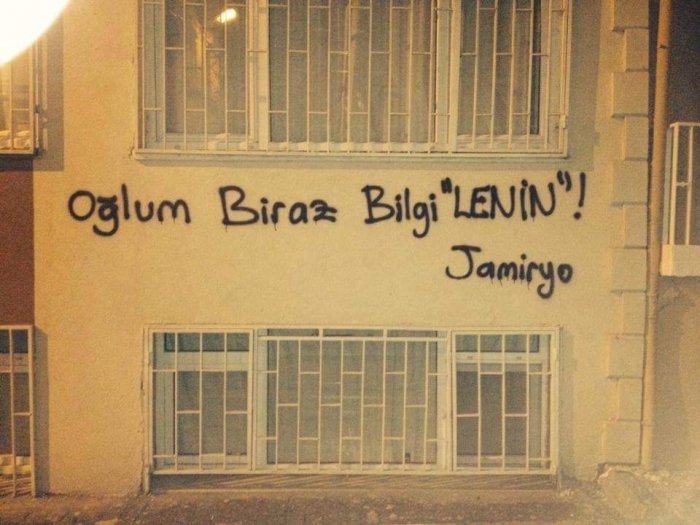 Oğlum Biraz Bilgi "LENİN"!
Jamiryo